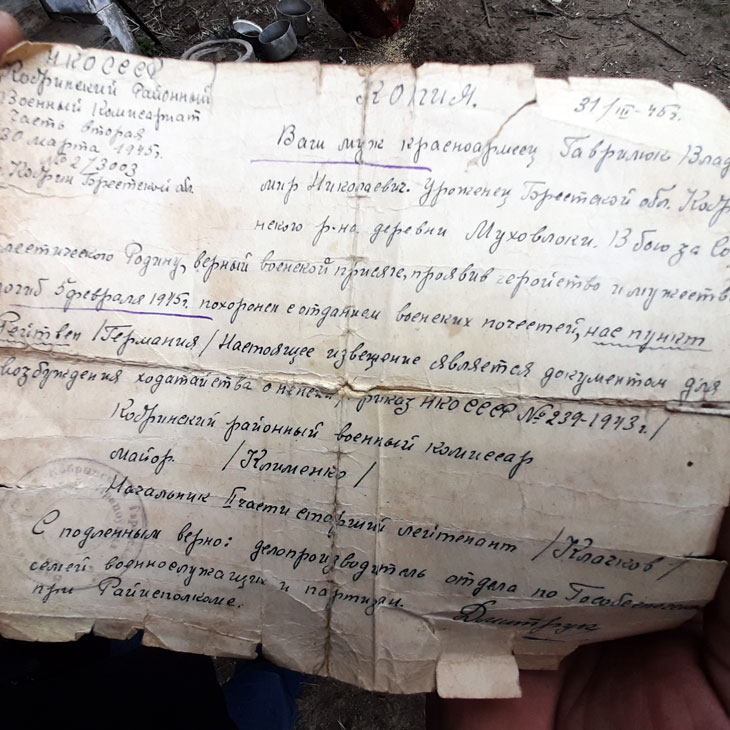 НКО СССР
Кобринский Районный
Военный Комисариат
Часть вторая
30 марта 1945г.
№ 2/3003
г. Кобрин Брестской обл.
КОПИЯ.
31/III-45г.
Ваш муж красноармеец Гаврилюк Влад
мир Николаевич. Уроженец Брестской обл. Кобри
нского р-на деревни Муховлоки. В бою за Со
леетического Родину, верный военской присяге, проявив геройство и мужеств
погиб 5 февраля 1945г. похоронен с отданием военских почестей, нас пункт
Рейтвен /Германия/ Настоящее извещение является документом для
возбуждения ходатайства о пенсии /приказ НКО СССР № 239-1943г./
Кобринский районный военный комиссар
майор. /Клименко/
Начальник II части старший лейтенант /Клачков/
С подленным верно: делопроизводитель отдела по Гособеспечен
семей военнослужащих и партизан.
при Райисполкоме. Дмитрук